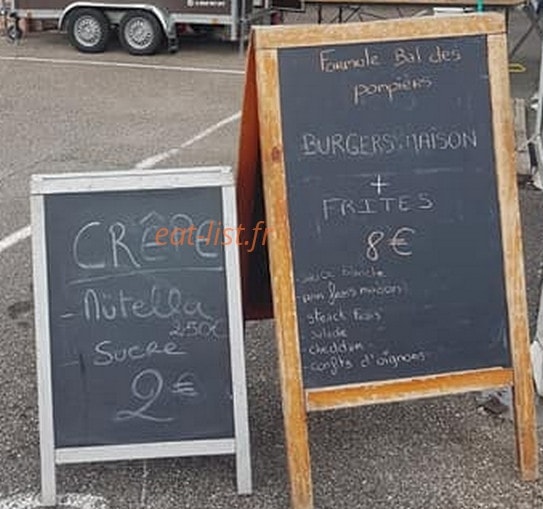 CRÊPE
- Nutella
2.50€
Sucre
2€
eat-list.fr
Formule Bal des
pompiers
BURGERS MAISON
+
FRITES
8€
- sauce blanche
- pain frais maison
steack frais
salade
- cheddar
- confits d'oignons